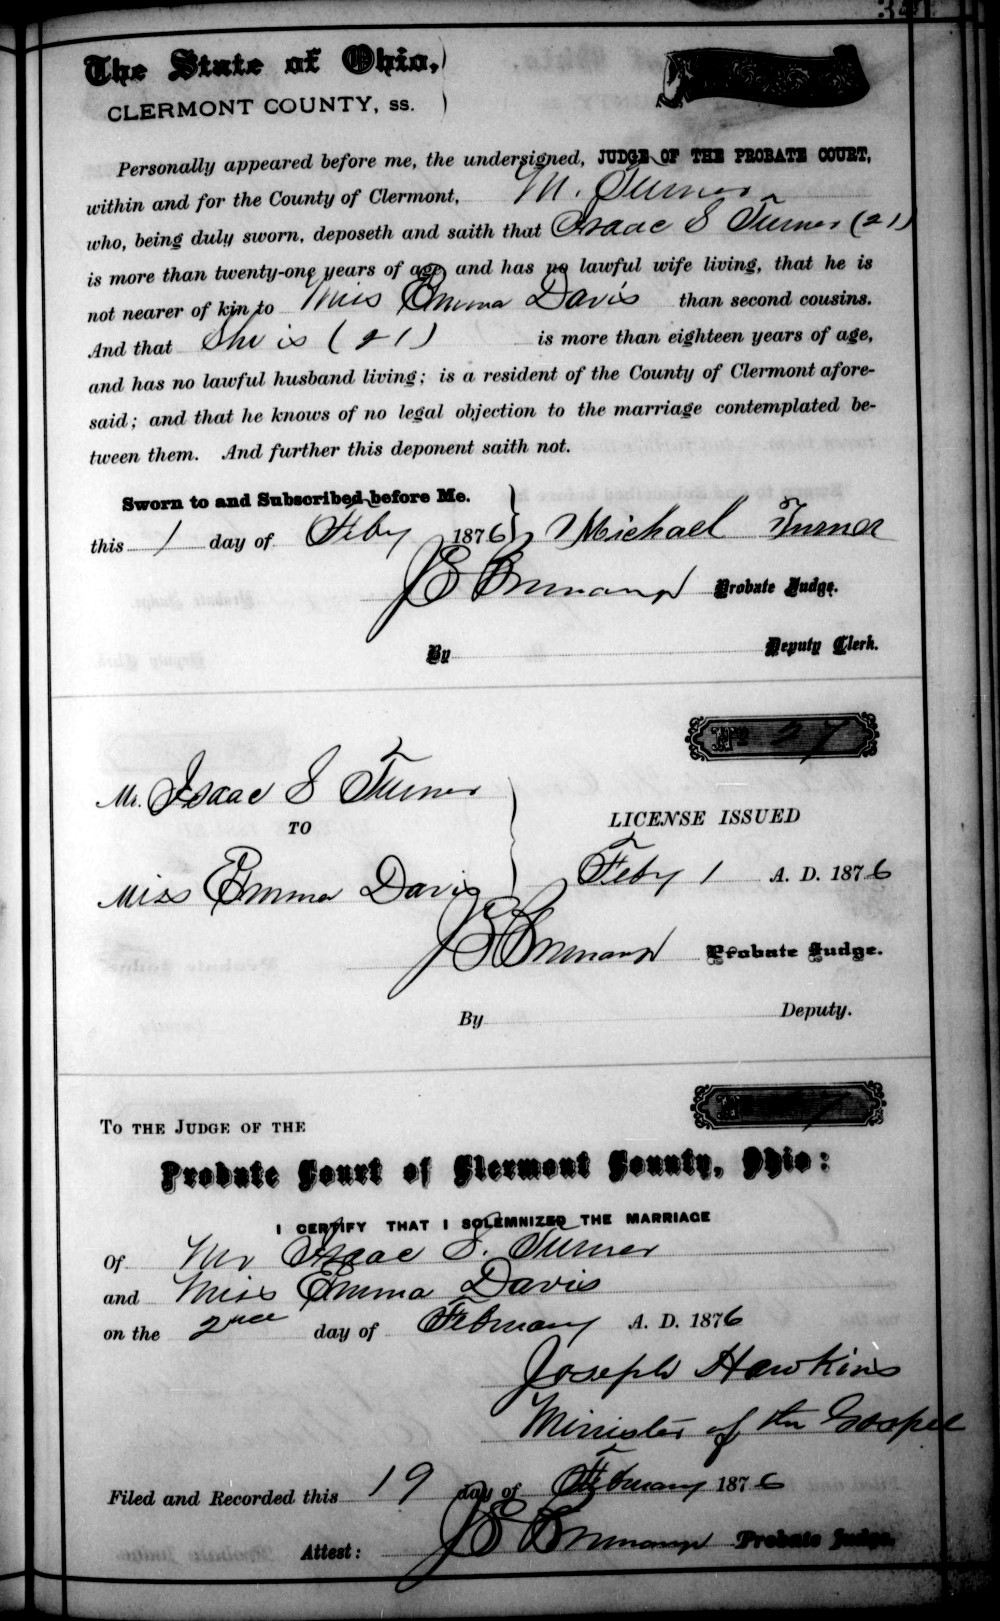 341
The State of Ohio,
CLERMONT COUNTY, ss.
Personally appeared before me, the undersigned, JUDGE OF THE PROBATE COURT,
within and for the County of Clermont, M. Turner
who, being duly sworn, deposeth and saith that Isaac S Turner (21)
is more than twenty-one years of age, and has no lawful wife living, that he is
not nearer of kin to Miss Emma Davis than second cousins.
And that She is (21) is more than eighteen years of age,
and has no lawful husband living; is a resident of the County of Clermont afore-
said; and that he knows of no legal objection to the marriage contemplated be-
tween them. And further this deponent saith not.
Sworn to and Subscribed before Me.
this 1 day of Feby 1876 Michael Turner
Probate Judge.
By Deputy Clerk.
No 27
Mr. Isaac S Turner
TO
LICENSE ISSUED
Miss Emma Davis Feby 1 A. D. 1876
Probate Judge.
By Deputy.
To the Judge of the
Probate Court of Clermont County, Ohio:
I CERTIFY THAT I SOLEMNIZED THE MARRIAGE
Of Mr Isaac S. Turner
and Miss Emma Davis
on the day of February A. D. 1876
Joseph Hawkins
Minister of the Gospel
Filed and Recorded this 19 day of February 1876
Attest: Probate Judge.